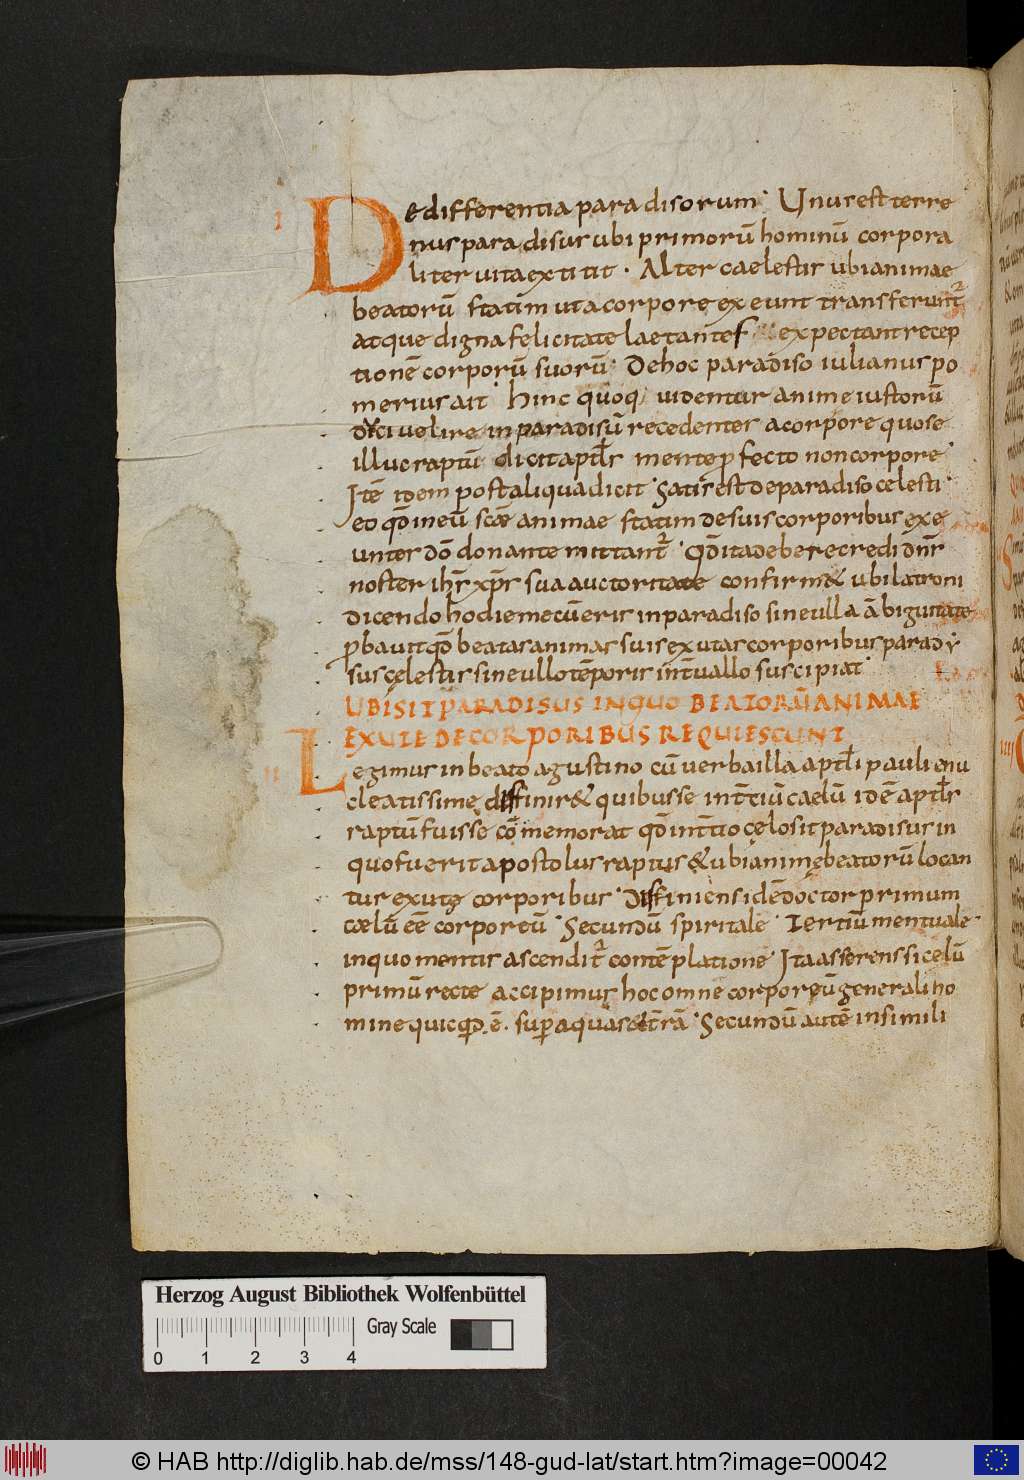 I De differentia paradisorum· Unus est terre
nus paradisus ubi primorū hominū corpora
liter uita extitit· Alter caelestis ubi animae
beatorū statim ut a corpore exeunt transferunt᷑
atque digna felicitate laetantes expectant recep
tionē corporū suorū· De hoc paradiso iulianus po
merius ait hinc quoq; uidentur anime iustorū
dici uel ire in paradisū recedentes a corpore quo se
illuc raptū dicit aptl̄s mente ꝓfecto non corpore·
Itē idem post aliqua dicit· Satis est de paradiso celesti·
eo qd̄ in eū scāe animae statim de suis corporibus exe
untes dō donante mittant᷑· Qd̄ ita debere credi dn̄s
noster ih̄s xp̄s sua auctoritate confirm& ubi latroni
dicendo hodie mecū eris in paradiso sine ulla ābiguitate
ꝓbauit qd̄ beatas animas suis exutas corporibus parady
sus cęlestis sine ullo tēporis int̄uallo suscipiat·
UBI SIT PARADISUS IN QUO BEATORŪ ANIMAE
EXUTE DE CORPORIBUS REQUIESCUNT
II Legimus in beato agustino cū uerba illa aptl̄i pauli enu
cleatissime diffinir& quibus se in t̄tiū caelū idē aptl̄s
raptū fuisse cōmemorat qd̄ in t̄tio cęlo sit paradisus in
quo fuerit apostolus raptus & ubi animę beatorū locan
tur exutę corporibus· Diffiniens idē doctor primum
cælū eē corporeū· Secundū spiritale· Tertiū mentuale·
in quo mentis ascendit᷑ contēplatione· Ita asserens si cęlū
primū recte accipimus hoc omne corporeū generali no
mine quicqd̄.ē. suꝑ aquas & t̄rā· Secundū autē in simili
Herzog August Bibliothek Wolfenbüttel
Gray Scale
0 1 2 3 4
© HAB http://diglib.hab.de/mss/148-gud-lat/start.htm?image=00042